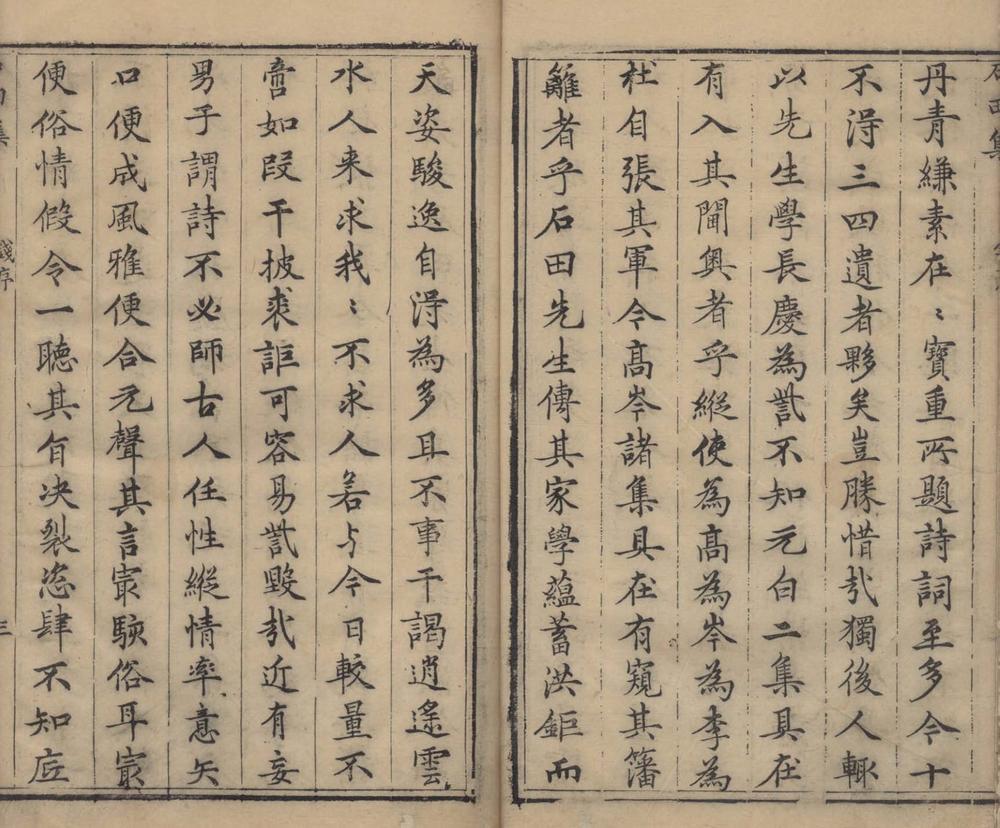 石田集
丹青縑素在〻寶重所題詩詞至多今十
不淂三四遺者夥矣豈勝惜㢤獨後人輙
以先生學長慶為訾不知元白二集具在
有入其閫奥者乎縦使為髙為岑為李為
杜自張其軍今髙岑諸集具在有窺其籓
籬者乎石田先生傳其家學蘊蓄洪鉅而
天姿駿逸自淂為多耳不事干謁逍遙雲
水人来求我〻不求人若与今日較量不
啻如段干披裘詎可容易訾毁㢤近有妄
男子謂詩不必師古人任性縦情率意矢
口便成風雅便合元聲其言㝡駭俗耳㝡
便俗情假令一聴其自决裂恣肆不知㡳
石田集
錢序
三